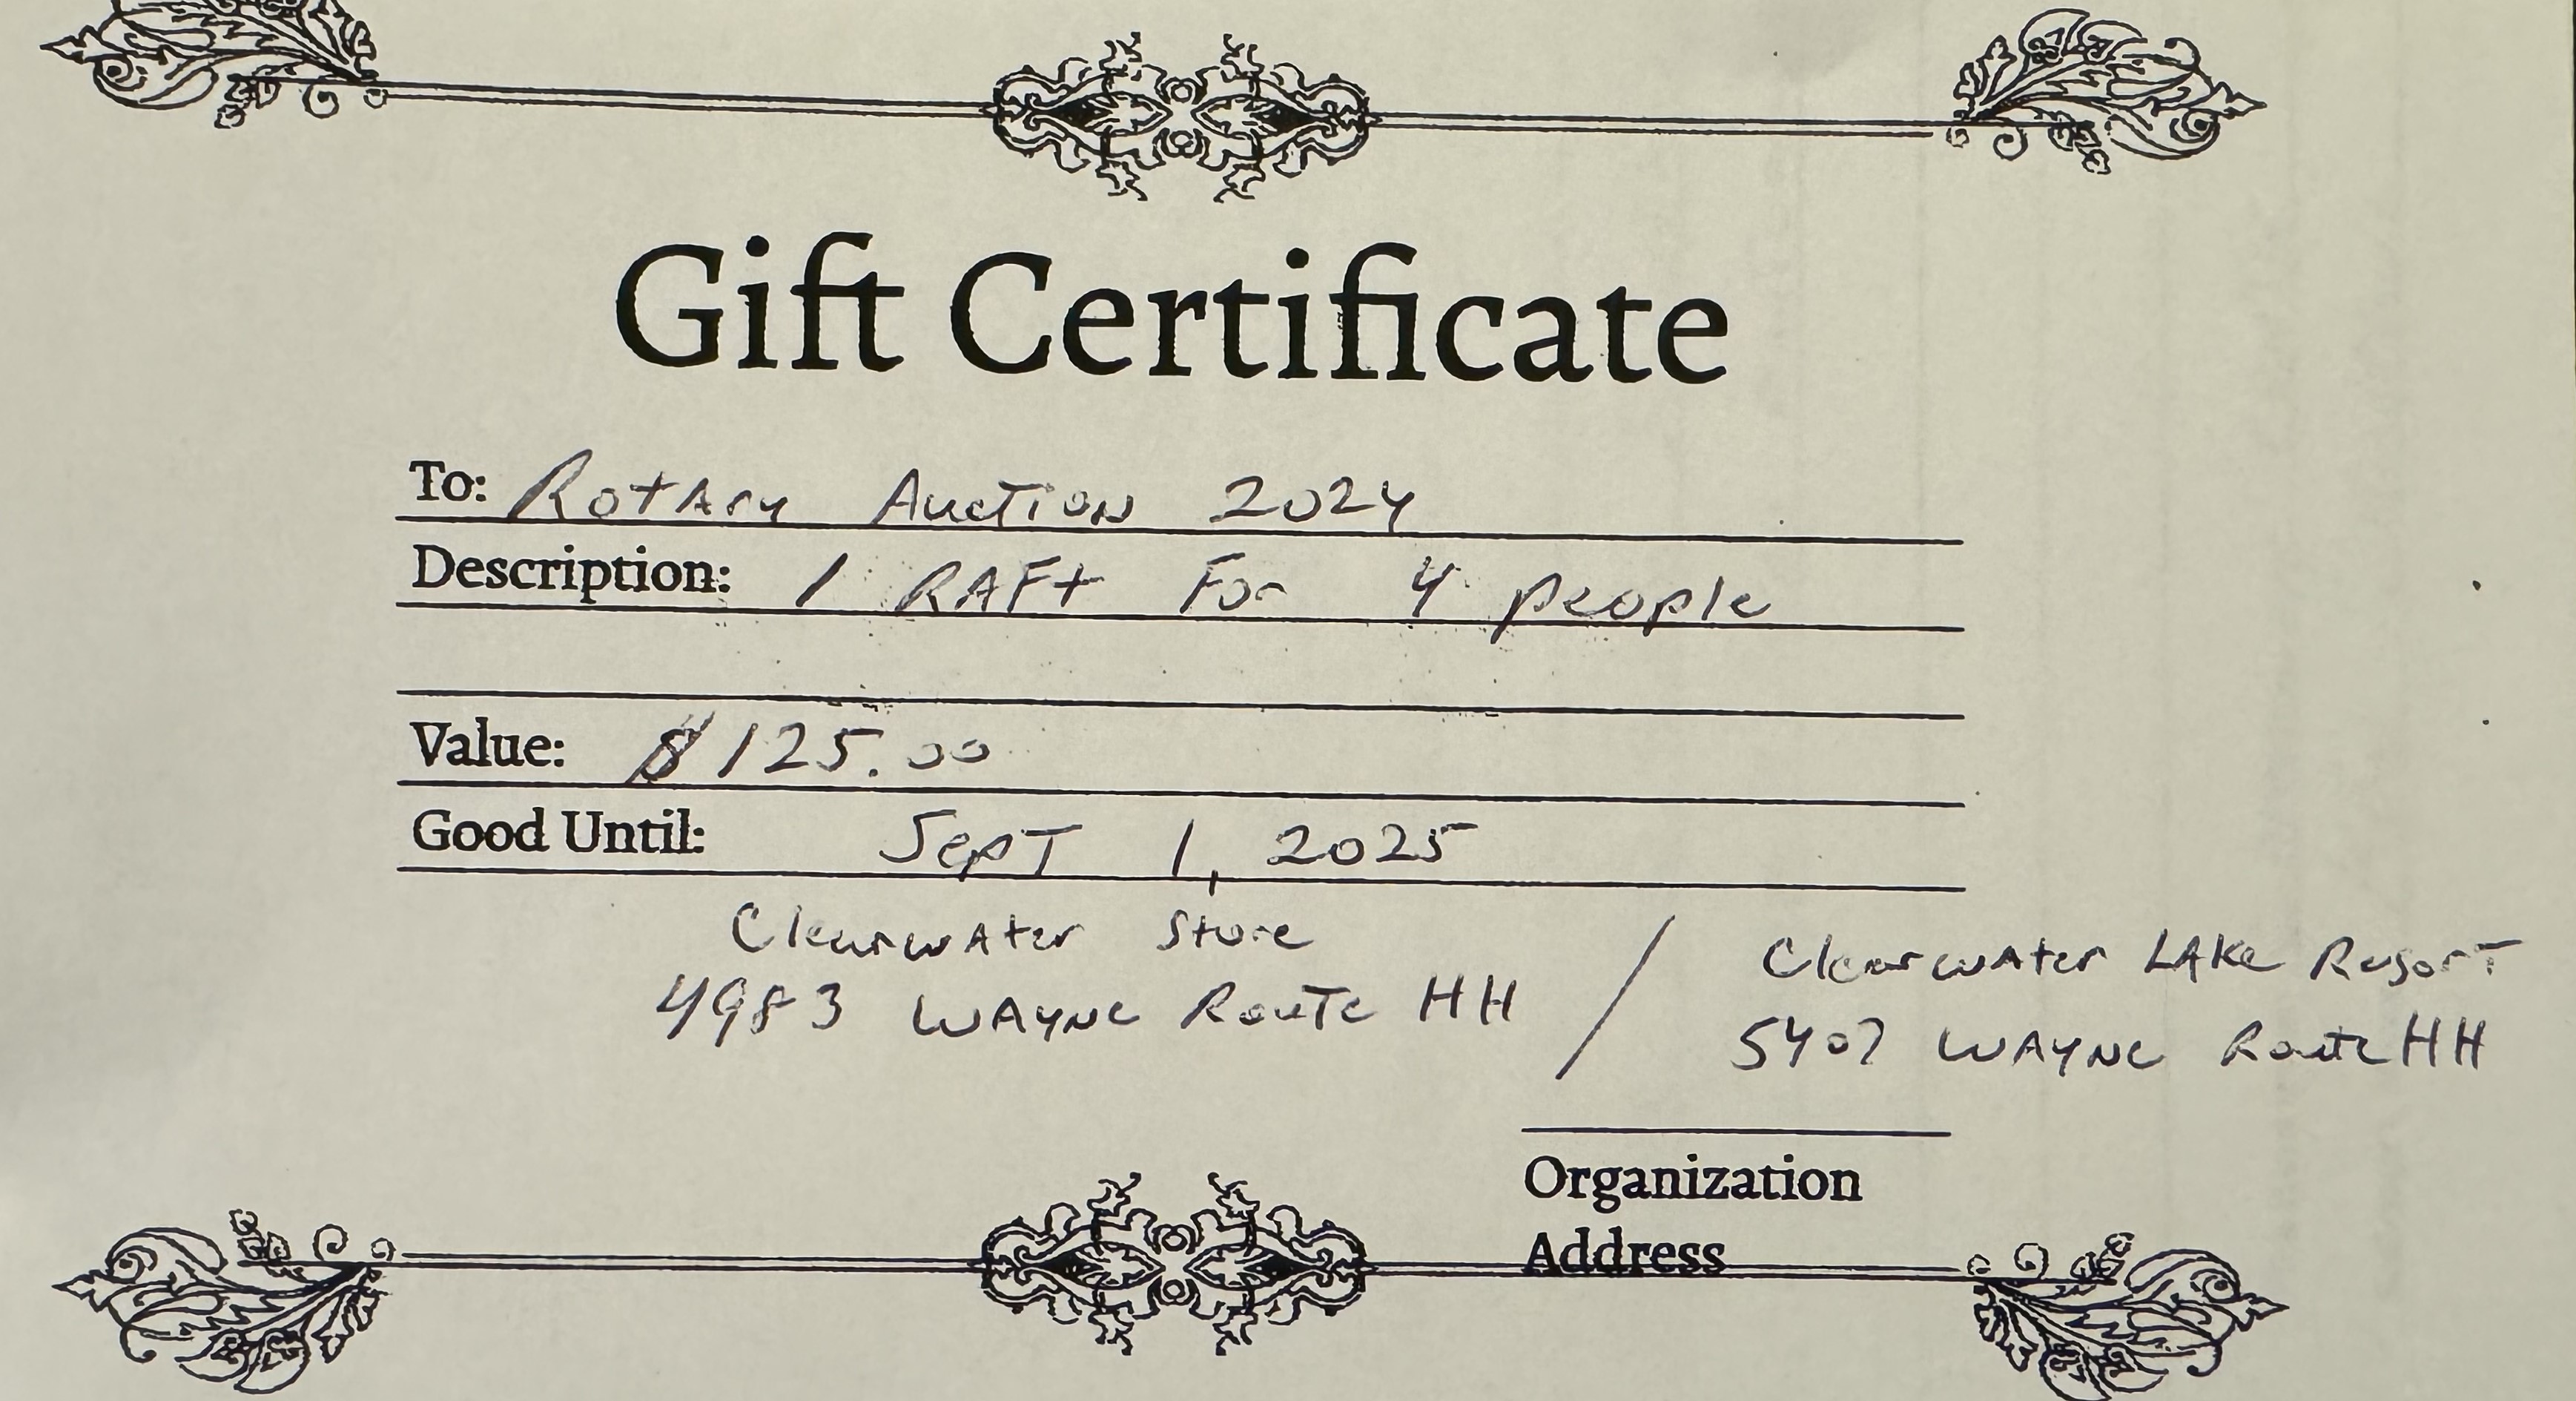 Gift Certificate
To: Rotary Auction 2024
Description: 1 RAFt For 4 people
Value: $125.00
Good Until: Sept 1, 2025
Clearwater Store / Clearwater Lake Resort
4983 Wayne Route HH / 5407 Wayne Route HH
Organization
Address